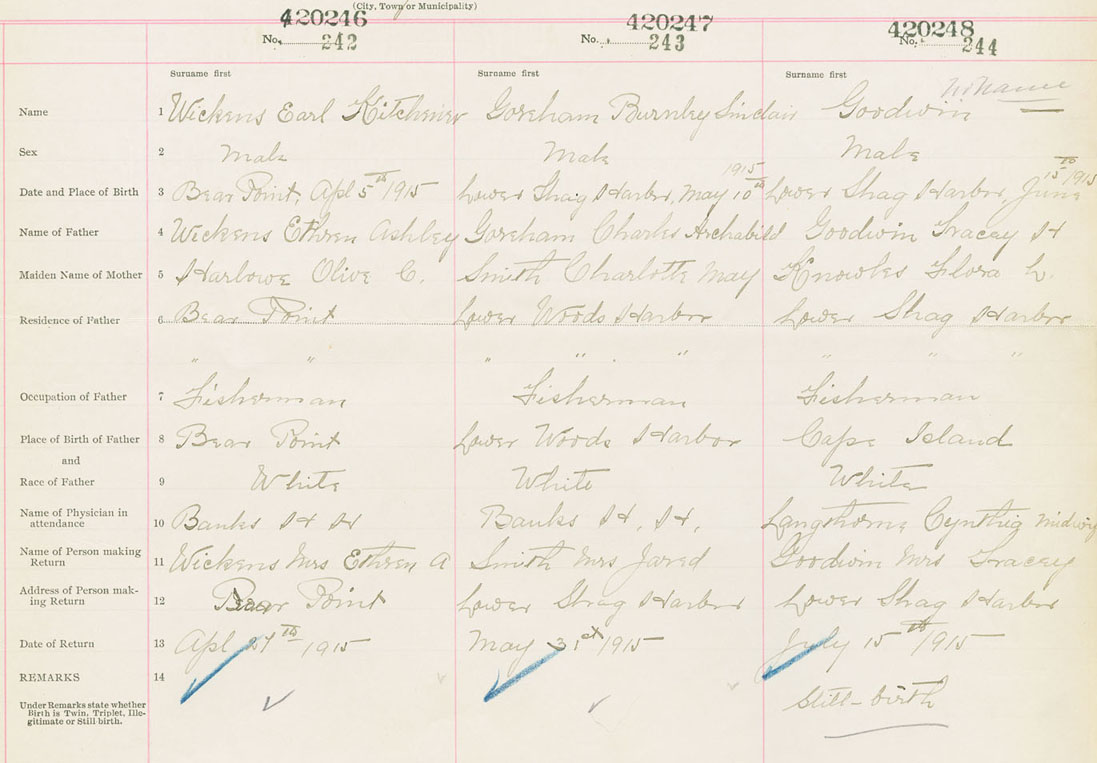 (City, Town or Municipality)
420246 420247 420248
No. 242 No. 243 No. 244
Surname first Surname first Surname first
no name
Name 1 Wickens Earl Kitchener Goreham Burnley Sinclair Goodwin —
Sex 2 Male Male Male
Date and Place of Birth 3 Bear Point, Apl 5th 1915 Lower Shag Harbor, May 10th 1915 Lower Shag Harbor, June 15th 1915
Name of Father 4 Wickens Ethren Ashley Goreham Charles Archabild Goodwin Tracey H
Maiden Name of Mother 5 Harlowe Olive C. Smith Charlotte May Knowles Flora L.
Residence of Father 6 Bear Point Lower Woods Harbor Lower Shag Harbor
" " " " " " " "
Occupation of Father 7 Fisherman Fisherman Fisherman
Place of Birth of Father 8 Bear Point Lower Woods Harbor Cape Island
and
Race of Father 9 White White White
Name of Physician in
attendance 10 Banks H H Banks H. H. Langthorne Cynthia midwife
Name of Person making
Return 11 Wickens Mrs Ethren A Smith Mrs Jared Goodwin Mrs Tracey
Address of Person mak-
ing Return 12 Bear Point Lower Shag Harbor Lower Shag Harbor
Date of Return 13 Apl th 1915 May 31st 1915 July 15th 1915
REMARKS 14
Under Remarks state whether
Birth is Twin, Triplet, Ille-
gitimate or Still birth.
Still-birth